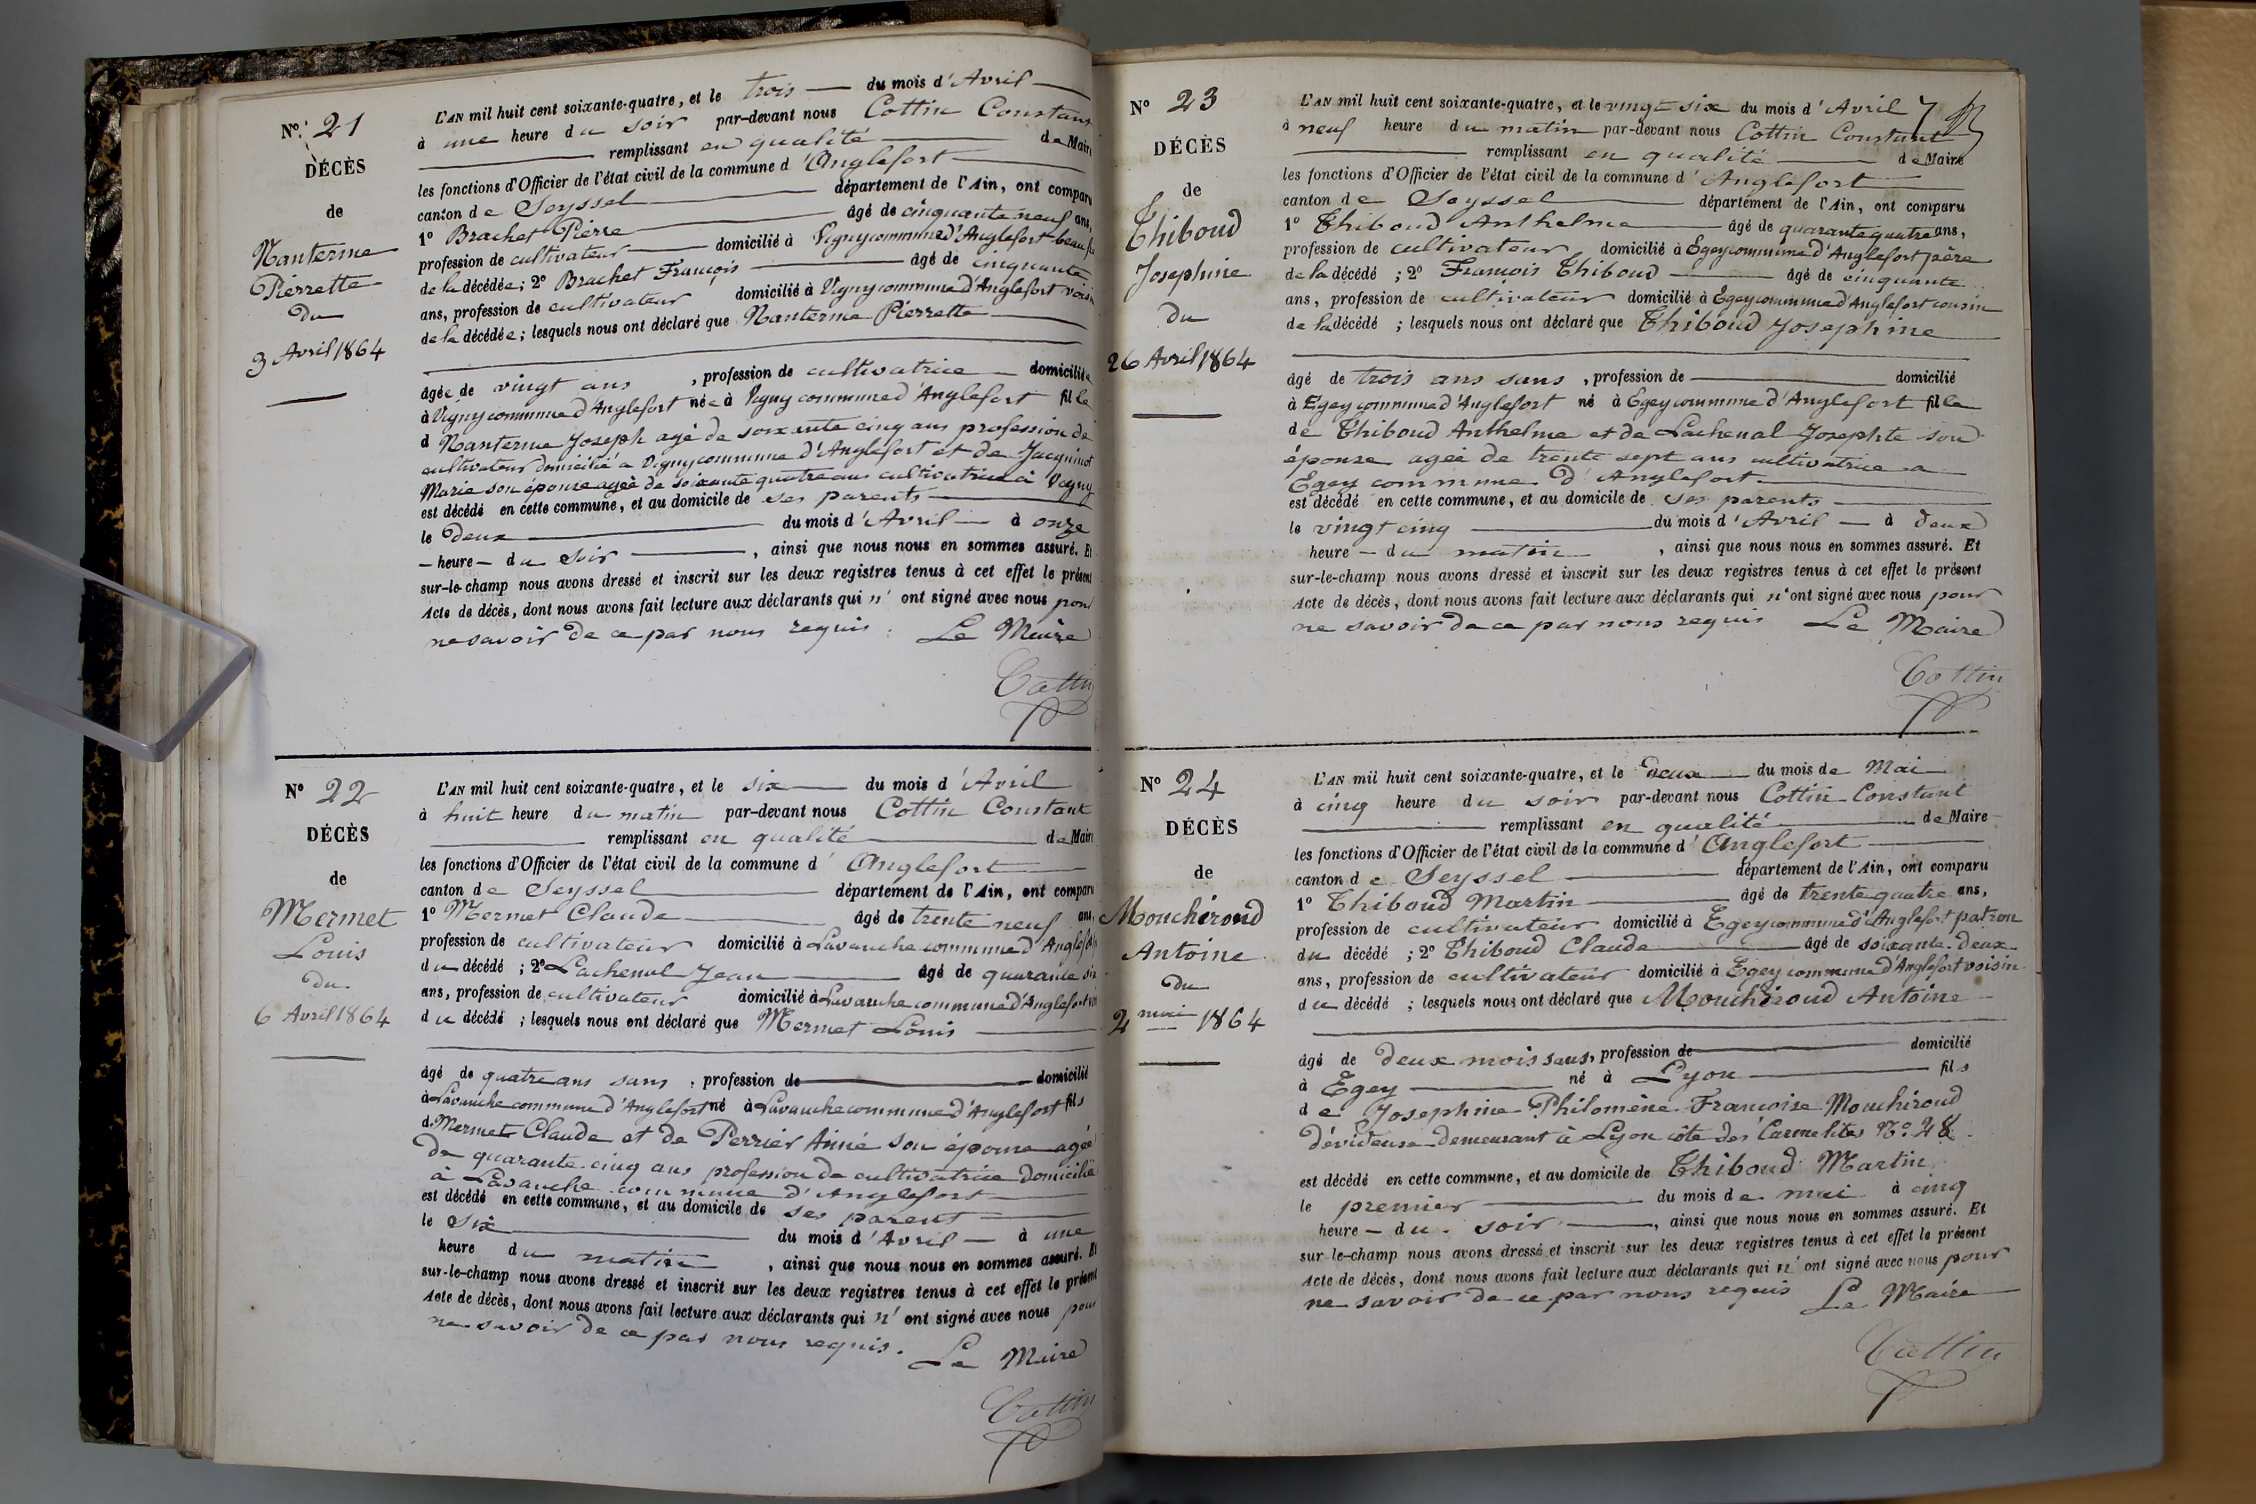 N° 21
DÉCÈS
de
Nanterme
Pierrette
du
3 Avril 1864
L'AN mil huit cent soixante-quatre, et le trois du mois d'Avril
à une heure du soir par-devant nous Cottin Constant
remplissant en qualité de Maire
les fonctions d'Officier de l'état civil de la commune d'Anglefort
canton de Seyssel département de l'Ain, ont comparu
1° Brachet Pierre âgé de cinquante neuf ans,
profession de cultivateur domicilié à Vigny commune d'Anglefort beau
de la décédée ; 2° Brachet François âgé de cinquante
ans, profession de cultivateur domicilié à Vigny commune d'Anglefort voisin
de la décédée ; lesquels nous ont déclaré que Nanterme Pierrette
âgée de vingt ans , profession de cultivatrice domiciliée
à Vigny commune d'Anglefort née à Vigny commune d'Anglefort fille
d Nanterme Joseph agé de soixante cinq ans profession de
cultivateur domicilié a Vigny commune d'Anglefort et de Jacquinot
Marie son épouse agée de soixante quatre ans cultivatrice à Vigny
est décédé en cette commune, et au domicile de ses parents
le deux du mois d'Avril à onze
heure du soir , ainsi que nous nous en sommes assuré. Et
sur-le-champ nous avons dressé et inscrit sur les deux registres tenus à cet effet le présent
Acte de décès, dont nous avons fait lecture aux déclarants qui n' ont signé avec nous pour
ne savoir de ce par nous requis. Le Maire
Cottin
N° 22
DÉCÈS
de
Mermet
Louis
du
6 Avril 1864
L'AN mil huit cent soixante-quatre, et le six du mois d'Avril
à huit heure du matin par-devant nous Cottin Constant
remplissant en qualité de Maire
les fonctions d'Officier de l'état civil de la commune d' Anglefort
canton de Seyssel département de l'Ain, ont comparu
1° Mermet Claude âgé de trente neuf ans,
profession de cultivateur domicilié à Lavanche commune d'Anglefort
du décédé ; 2° Lachenal Jean âgé de quarante six
ans, profession de cultivateur domicilié à Lavanche commune d'Anglefort
du décédé ; lesquels nous ont déclaré que Mermet Louis
âgé de quatre ans sans , profession de domicilié
à Lavanche commune d'Anglefort né à Lavanche commune d'Anglefort fils
d Mermet Claude et de Perrier Aimé son épouse agée
de quarante-cinq ans profession de cultivatrice domicilié
à Lavanche commune d'Anglefort
est décédé en cette commune, et au domicile de ses parent
le six du mois d'Avril à une
heure du matin , ainsi que nous nous en sommes assuré. Et
sur-le-champ nous avons dressé et inscrit sur les deux registres tenus à cet effet le présent
Acte de décès, dont nous avons fait lecture aux déclarants qui n' ont signé avec nous pour
ne savoir de ce par nous requis. Le Maire
Cottin
N° 23
DÉCÈS
de
Thiboud
Josephine
du
26 Avril 1864
L'AN mil huit cent soixante-quatre, et le vingt six du mois d'Avril
à neuf heure du matin par-devant nous Cottin Constant
remplissant en qualité de Maire
les fonctions d'Officier de l'état civil de la commune d'Anglefort
canton de Seyssel département de l'Ain, ont comparu
1° Thiboud Anthelme âgé de quarante quatre ans,
profession de cultivateur domicilié à Egey commune d'Anglefort père
de la décédé ; 2° François Thiboud âgé de cinquante
ans, profession de cultivateur domicilié à Egey commune d'Anglefort cousin
de la décédé ; lesquels nous ont déclaré que Thiboud Josephine
âgé de trois ans sans , profession de domicilié
à Egey commune d'Anglefort né à Egey commune d'Anglefort fille
de Thiboud Anthelme et de Lachenal Josephte son
épouse agée de trente sept ans cultivatrice a
Egey commune d'Anglefort
est décédé en cette commune, et au domicile de ses parents
le vingt cinq du mois d'Avril à deux
heure du matin , ainsi que nous nous en sommes assuré. Et
sur-le-champ nous avons dressé et inscrit sur les deux registres tenus à cet effet le présent
Acte de décès, dont nous avons fait lecture aux déclarants qui n'ont signé avec nous pour
ne savoir de ce par nous requis Le Maire
Cottin
N° 24
DÉCÈS
de
Mouchiroud
Antoine
du
2 mai 1864
L'AN mil huit cent soixante-quatre, et le deux du mois de Mai
à cinq heure du soir par-devant nous Cottin Constant
remplissant en qualité de Maire
les fonctions d'Officier de l'état civil de la commune d'Anglefort
canton de Seyssel département de l'Ain, ont comparu
1° Thiboud Martin âgé de trente quatre ans,
profession de cultivateur domicilié à Egey commune d'Anglefort patron
du décédé ; 2° Thiboud Claude âgé de soixante-deux
ans, profession de cultivateur domicilié à Egey commune d'Anglefort voisin
du décédé ; lesquels nous ont déclaré que Mouchiroud Antoine
âgé de deux mois sans, profession de domicilié
à Egey né à Lyon fils
de Josephine Philomène Francoise Mouchiroud
dévideuse demeurant à Lyon côte des Carmelites N° 28
est décédé en cette commune, et au domicile de Thiboud Martin
le premier du mois de mai à cinq
heure du soir , ainsi que nous nous en sommes assuré. Et
sur-le-champ nous avons dressé et inscrit sur les deux registres tenus à cet effet le présent
Acte de décès, dont nous avons fait lecture aux déclarants qui n' ont signé avec nous pour
ne savoir de ce par nous requis Le Maire
Cottin